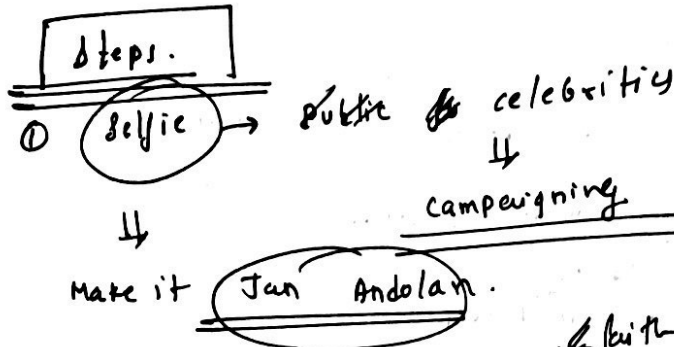 Steps.
① Selfie → celebrities
⇓
Campaigning
⇓
Make it Jan Andolan.